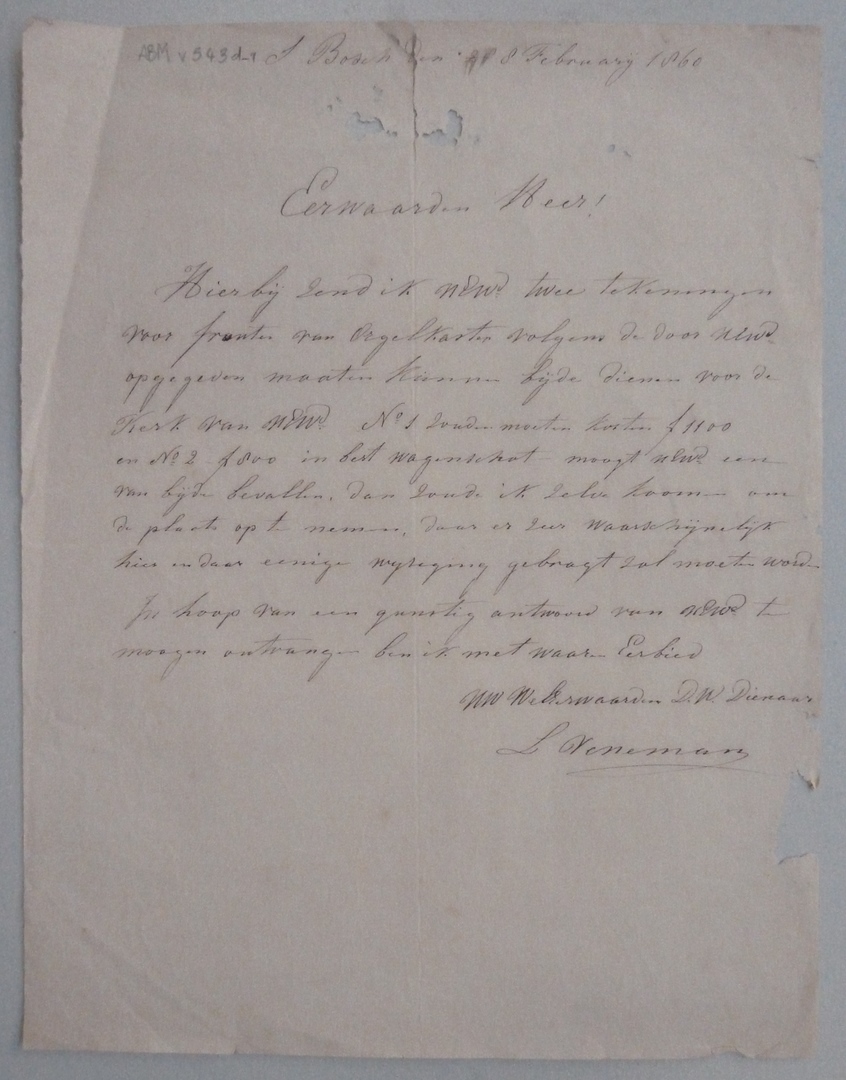 ABM v343d-1 S Bosch den 8 February 1860
Eerwaarden Heer!
Hierbij zend ik UEWd twee tekeningen
voor fronten van Orgelkasten volgens de door UEWd
opgegeven maaten kunnen bijde dienen voor de
Kerk van UEWd No 1 zouden moeten kosten f 1100
en No 2 f 800 in best wagenschot moogt UEWd een
van bijde bevallen, dan zoude ik zelve koomen om
de plaats op te nemen, daar er zeer waarschijnelijk
hier en daar eenige wyseging gebragt zal moeten worden
In hoop van een gunstig antwoord van UEWd te
moogen ontvangen ben ik met waare Eerbied
UW WelEerwaarden D.W. Dienaar
L Veneman